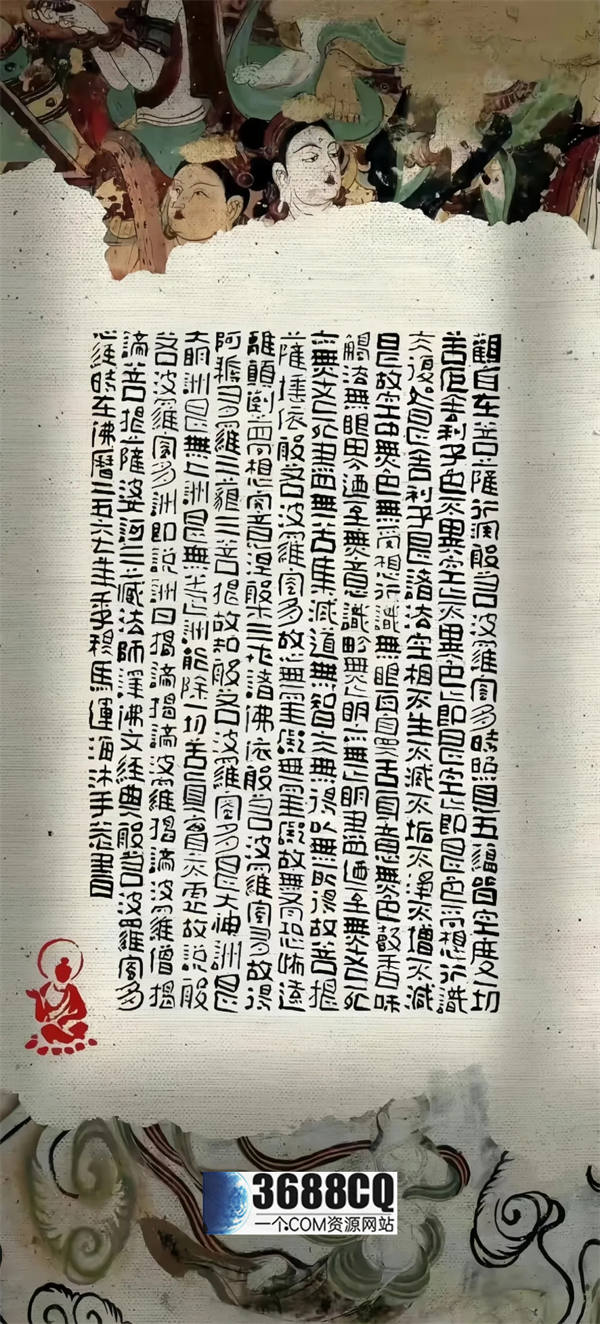 觀自在菩薩行深般若波羅蜜多時照見五蘊皆空度一切
苦厄舍利子色不異空〻不異色〻即是空〻即是色受想行識
亦復如是舍利子是諸法空相不生不滅不垢不淨不增不減
是故空中無色無受想行識無眼耳鼻舌身意無色聲香味
觸法無眼界迺至無意識界無〻明亦無〻明盡迺至無老死
亦無老死盡無苦集滅道無智亦無得以無所得故菩提
薩埵依般若波羅蜜多故心無罣礙無罣礙故無有恐怖遠
離顛倒夢想究竟涅槃三世諸佛依般若波羅蜜多故得
阿耨多羅三藐三菩提故知般若波羅蜜多是大神詶是
大明詶是無上詶是無等〻詶能除一切苦真實不虛故說般
若波羅蜜多詶即說詶曰揭諦揭諦波羅揭諦波羅僧揭
諦菩提薩婆訶三藏法師譯佛文經典般若波羅蜜多
心經時在佛曆二五六年季穆馬運海沐手恭書
3688CQ
一个.COM资源网站